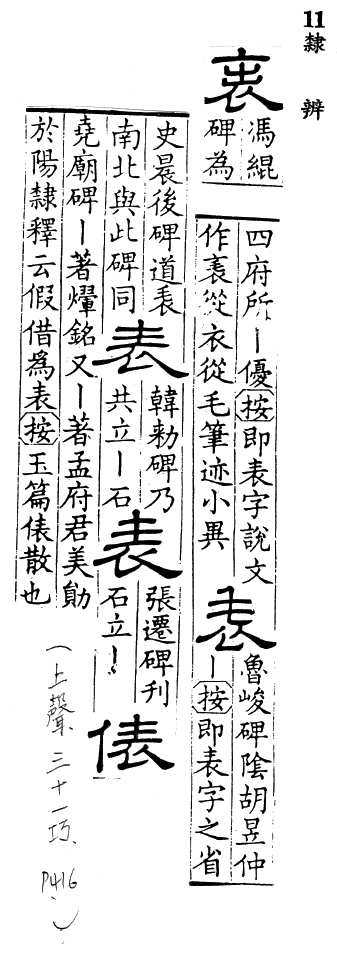 11 隸辨
𧘝
馮緄
碑為
四府所丨優按即表字說文
作𧘝從衣從毛筆迹小異
表
魯峻碑陰胡昱仲
丨按即表字之省
史晨後碑道表
南北與此碑同
表
韓勑碑乃
共立丨石
表
張遷碑刊
石立丨
俵
堯廟碑丨著煇銘又丨著孟府君美勛
於陽隸釋云假借爲表按玉篇俵散也
（上聲、三十一巧、P416、）